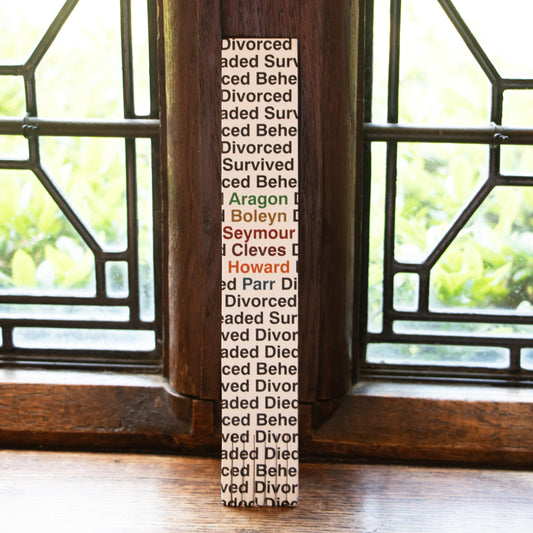 Divorced
aded Surv
ced Behe
Divorced
aded Surv
ced Behe
Divorced
Survived
ced Behe
d Aragon Di
Boleyn D
Seymour
d Cleves D
Howard
ed Parr Di
Divorced
eaded Sur
ved Divor
aded Died
ced Behe
ved Divor
aded Died
ced Behe
ved Divor
aded Died
ced Behe
ved Divor
aded Died